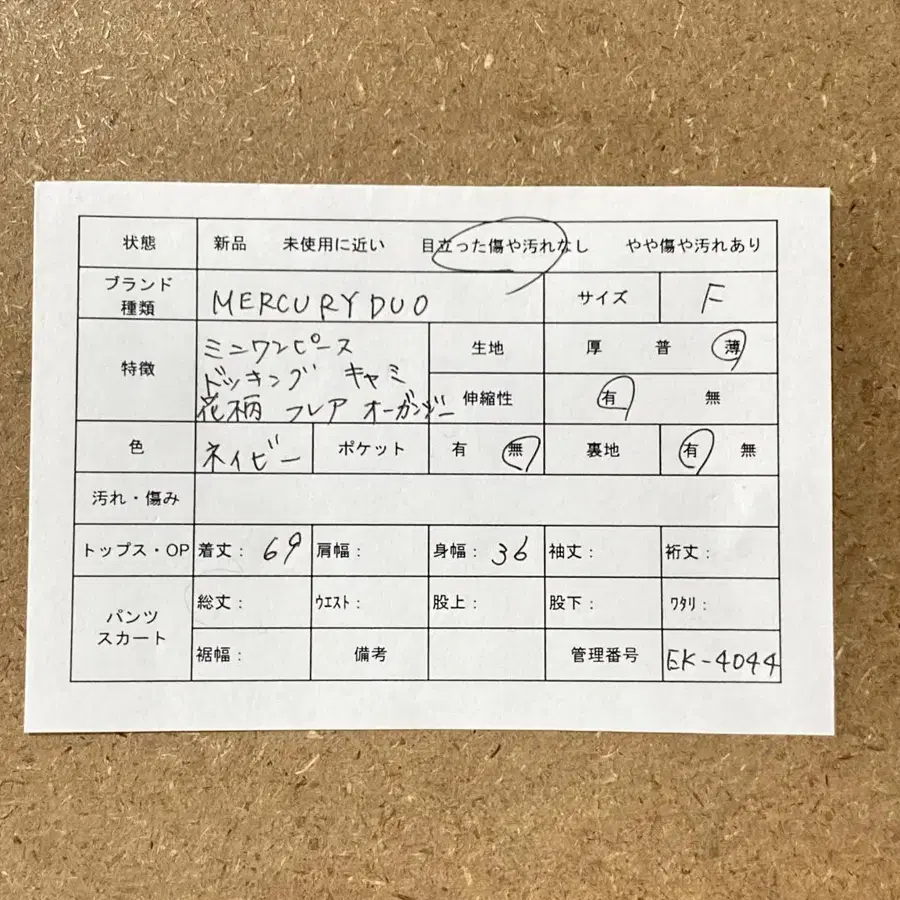 状態 新品 未使用に近い 目立った傷や汚れなし やや傷や汚れあり
ブランド 種類 MERCURYDUO サイズ F
特徴 ミニワンピース
ドッキング キャミ
花柄 フレア オーガンジー
生地 厚 普 薄
伸縮性 有 無
色 ネイビー ポケット 有 無 裏地 有 無
汚れ・傷み
トップス・OP 着丈: 69 肩幅: 身幅: 36 袖丈: 裄丈:
パンツ スカート 総丈: ウエスト: 股上: 股下: ワタリ:
裾幅: 備考 管理番号 EK-4044